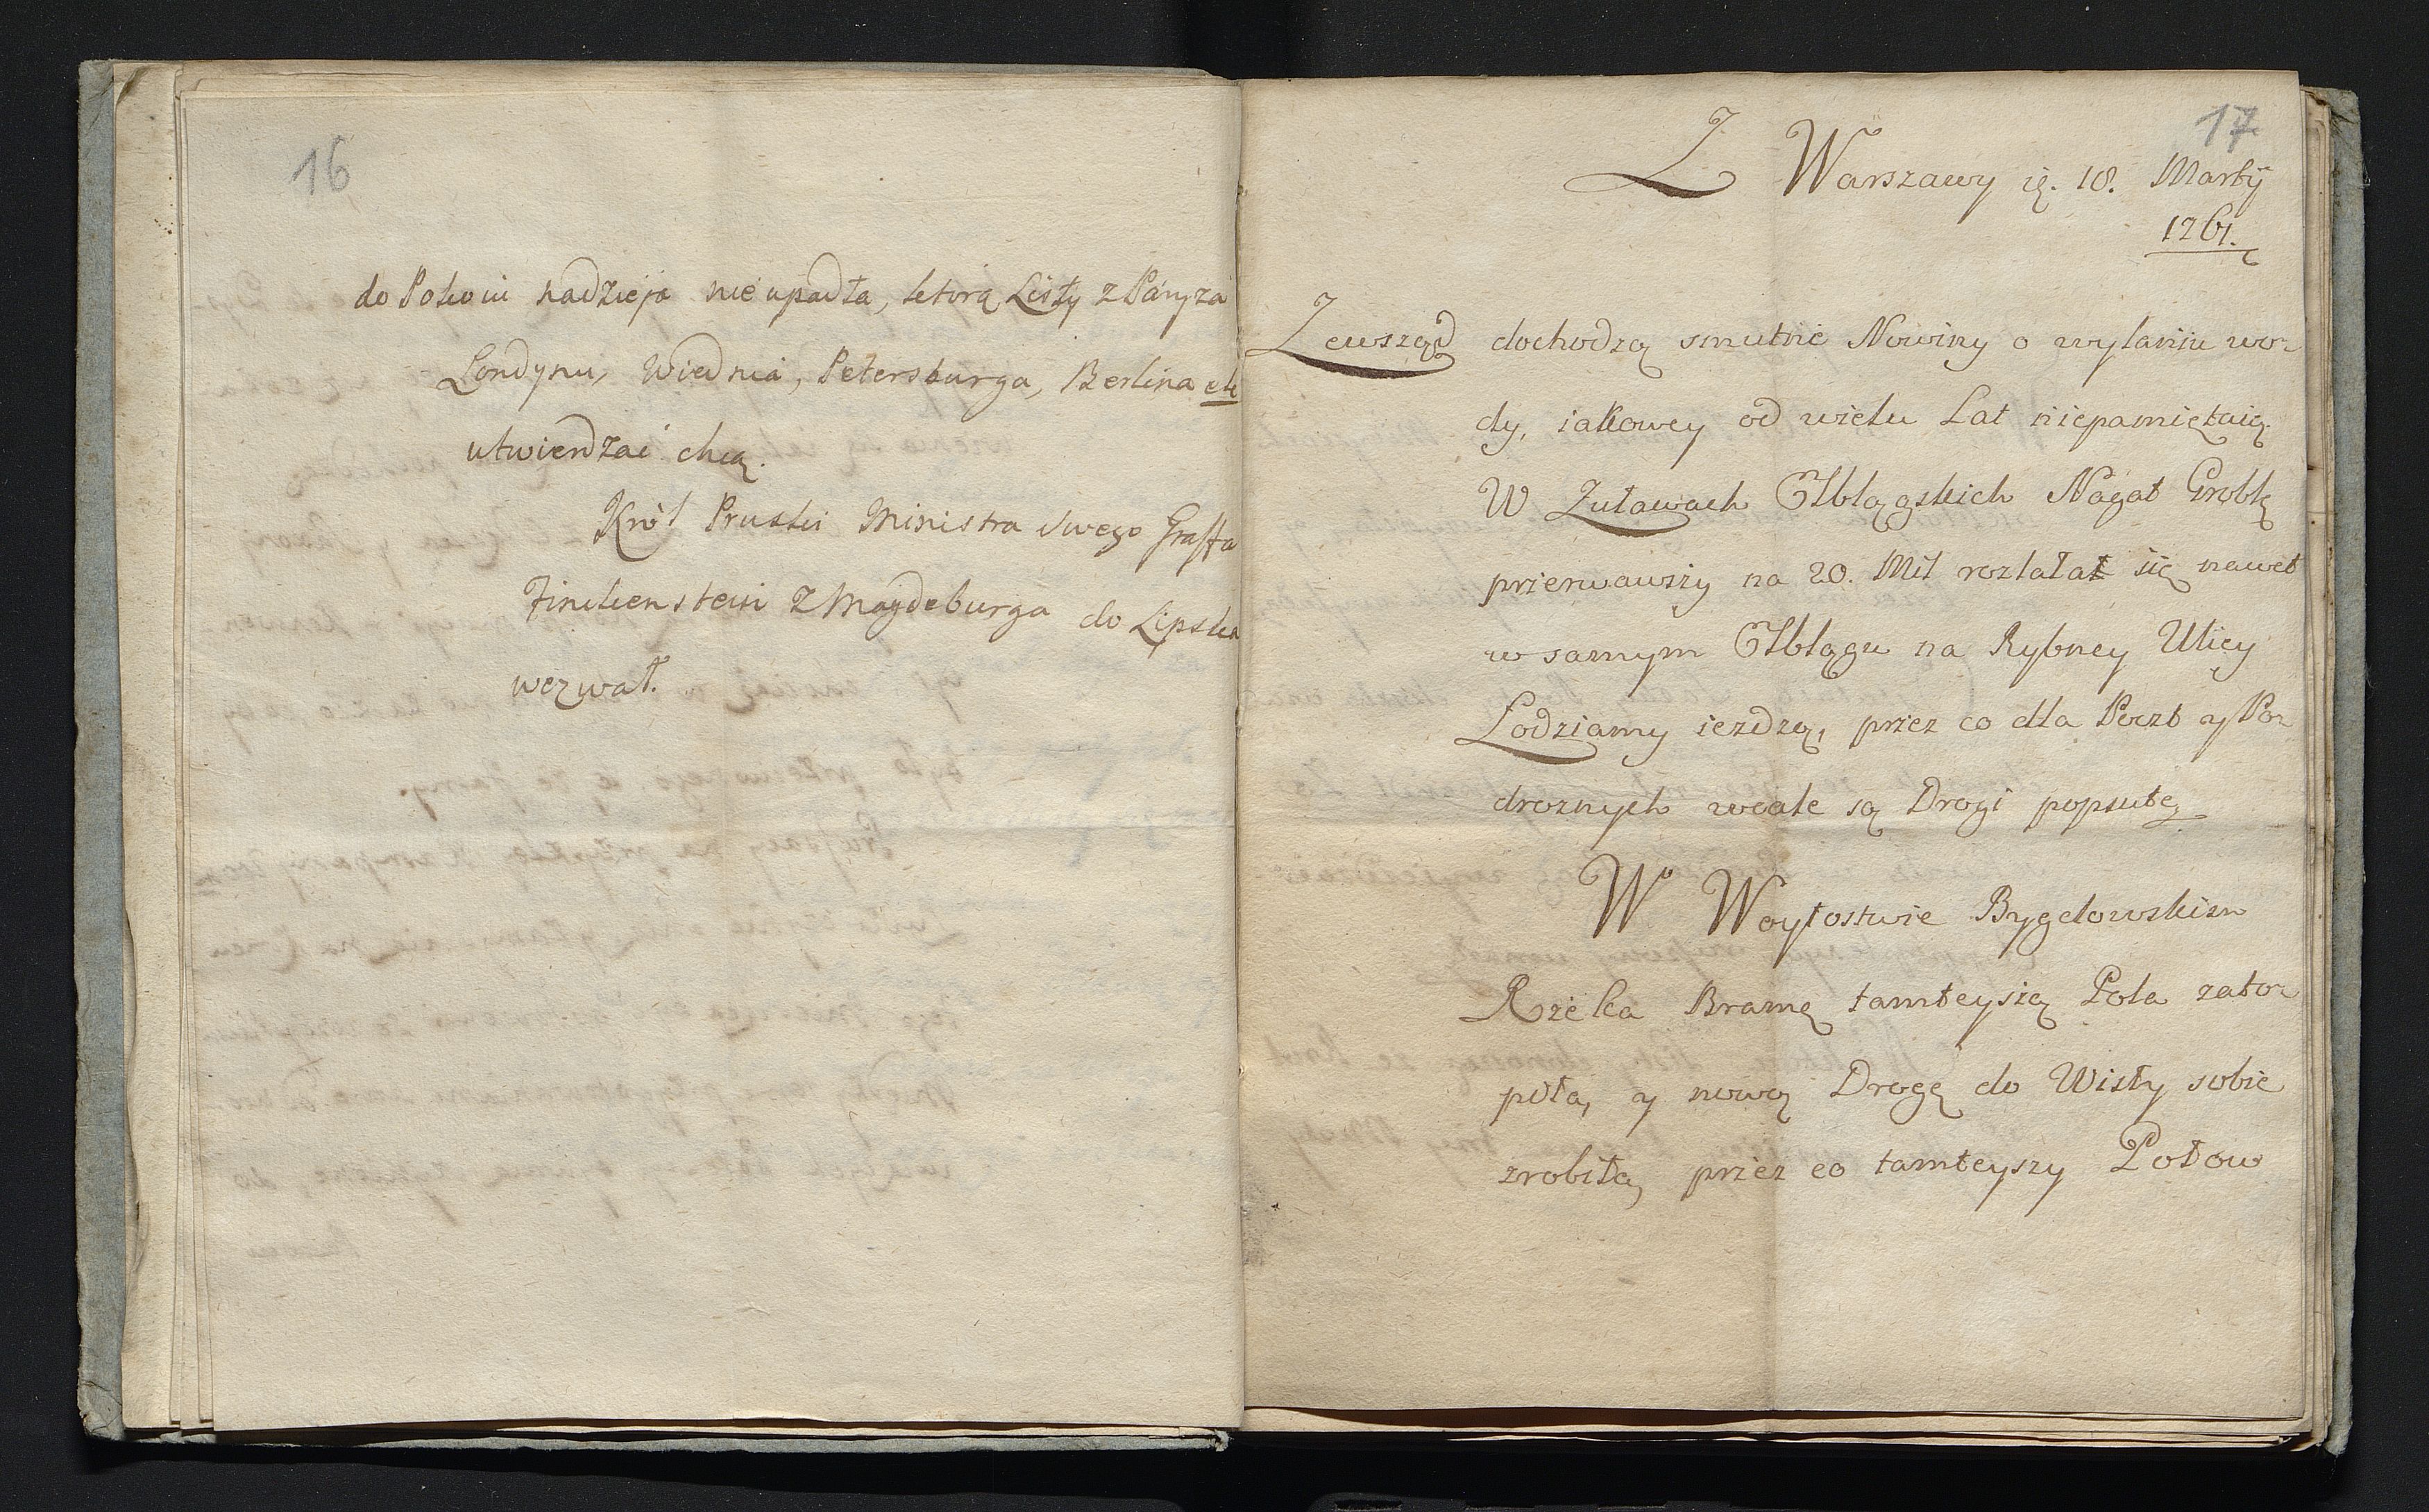 16
do Pokoiu nadzieja nie upadła, ktorą Listy z Paryża
Londynu, Wiednia, Petersburga, Berlina etc
utwierdzać chcą.
Krol Pruski Ministra swego Graffa
Finckenstein z Magdeburga do Lipska
wezwał.
17
Z Warszawy ię. 18. Martÿ
1761.
Zewsząd dochodzą smutne Nowiny o wylaniu wo-
dy, iakowey od wielu Lat niepamiętaią.
W Zuławach Elblągskich Nagat Groblę
przerwawszy na 20. Mil rozlałał się nawet
w samym Elblągu na Rybney Ulicy
Lodziamy iezdzą, przez co dla Poczt y Po-
droznych wcale są Drogi popsute.
W Woytostwie Bygdowskim
Rzeka Bramę tamteyszą Pola zato-
piła, y nową Drogę do Wisły sobie
zrobiła, przez co tamteyszy Połow